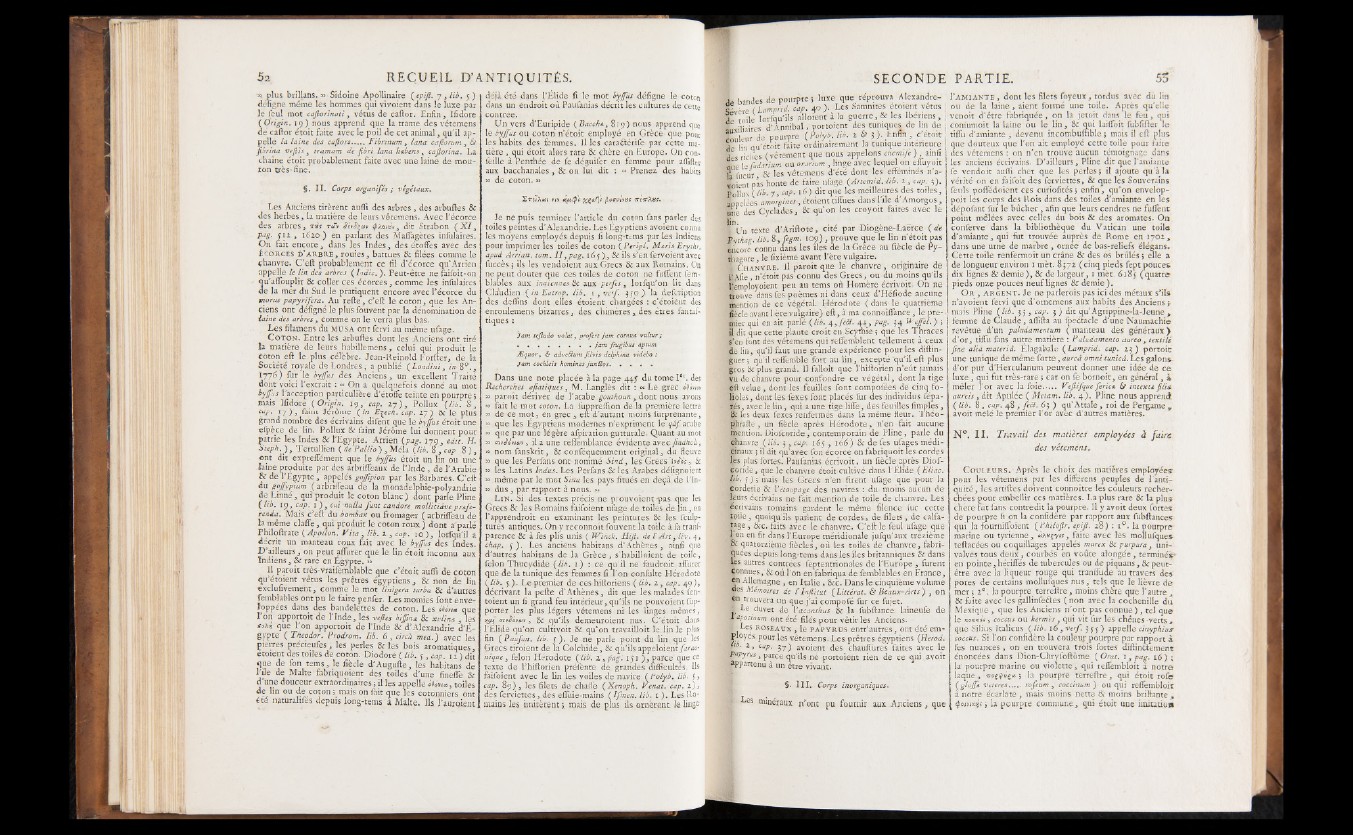 52 RECUEIL D'ANTIQUITÉS.
» plus brillans. » Sidoine Apollinaire (epiſt. 7, lib. 5)
déſigne même les hommes qui vivoient dans le luxe par
le ſeul mot caſtorinati, vêtus de caſtor. Enfin, Iſidore
(Origin. 19) nous apprend que la trame des vêtemens
de caſtor étoit faite avec le poil de cet animal, qu'il ap-
pelle la laine des caſtors..... Fibrinum, lana caſtorum, &
fibrina veſtis, tramam de fibri lana habens, caſtorina. La
chaîne étoit probablement faite avec une laine de mou-
ton très-fine.
§. II. Corps organiſés ; végétaux.
Les Anciens tirèrent auſſi des arbres, des arbuſtes &
des herbes, la matière de leurs vêtemens. Avec l'écorce
des arbres, dit Strabon (XI,
pag. 512, 1620) en parlant des Maſſagètes inſulaires.
On fait encore, dans les Indes, des étoffes avec des
ÉCORCES D'ARBRE, rouies, battues & filées comme le
chanvre. C'eſt probablement ce fil d'écorce qu'Arrien
appelle le lin des arbres (Indic.). Peut-être ne faiſoit-on
qu'aſſouplir & coller ces écorces, comme les inſulaires
de la mer du Sud le pratiquent encore avec l'écorce du
morus papyrifera. Au reſte, c'eſt le coton, que les An-
ciens ont déſigné le plus ſouvent par la dénomination de
laine des arbres, comme on le verra plus bas.
Les filamens du MUSA ont ſervi au même uſage.
COTON. Entre les arbuſtes dont les Anciens ont tiré
la matière de leurs habillemens, celui qui produit le
coton eſt le plus célèbre. Jean-Reinold Forſter, de la
Société royale de Londres, a publié (Londini, in 8°.,
1776) ſur le byſſus des Anciens, un excellent Traité
dont voici l'extrait : « On a quelquefois donné au mot
byſſus l'acception particulière d'étoffe teinte en pourpre;
mais Iſidore (Origin. 19, cap. 27), Pollux (lib. 8,
cap. 17), ſaint Jérôme (in Ezech. cap. 27) & le plus
grand nombre des écrivains diſent que le byſſus étoit une
eſpèce de lin. Pollux & ſaint Jérôme lui donnent pour
patrie les Indes & l'Egypte. Arrien (pag. 179, edit. H.
Steph.), Tertullien (de Pallio), Mela (lib. 8, cap. 8),
ont dit expreſſément que le byſſus étoit un lin ou une
laine produite par des arbriſſeaux de l'Inde, de l'Arabie
& de l'Egypte, appelés goſſipion par les Barbares. C'eſt
du goſſypium (arbriſſeau de la monadelphie-polyandrie
de Linné, qui produit le coton blanc) dont parle Pline
(lib. 19, cap. 1), cui nulla ſunt candore mollitiáve præfe-
renda. Mais c'eſt du bombax ou fromager (arbriſſeau de
la même claſſe, qui produit le coton roux) dont a parlé
Philoſtrate (Apollon. Vita, lib. 2, cap. 10), lorſqu'il a
décrit un manteau roux fait avec le byſſus des Indes.
D'ailleurs, on peut aſſurer que le lin étoit inconnu aux
Indiens, & rare en Egypte. »
Il paroît très-vraiſemblable que c'étoit auſſi de coton
qu'étoient vêtus les prêtres égyptiens, & non de lin
excluſivement, comme le mot linigera turba & d'autres
ſemblables ont pu le faire penſer. Les momies ſont enve-
loppées dans des bandelettes de coton. Les que
l'on apportoit de l'Inde, les veſtes biſſinæ & les
que l'on apportoit de l'Inde & d'Alexandrie d'É-
gypte (Theodor. Prodrom. lib. 6, circà mea.) avec les
pierres précieuſes, les perles & les bois aromatiques,
étoient des toiles de coton. Diodore (lib. 5, cap. 12) dit
que de ſon tems, le ſiècle d'Auguſte, les habitans de
l'île de Malte fabriquoient des toiles d'une fineſſe &
d'une douceur extraordinaires; il les appelle toiles
de lin ou de coton; mais on ſait que les cotonniers ont
été naturaliſés depuis long-tems à Malte. Ils l'auroient
déjà été dans l'Élide ſi le mot byſſus déſigne le coton
dans un endroit où Pauſanias décrit les cultures de cette
contrée.
Un vers d'Euripide (Bacchæ, 819) nous apprend que
le byſſus ou coton n'étoit employé en Grèce que pour
les habits des femmes. Il les caractériſe par cette ma-
tière, qui étoit alors rare & chère en Europe. On con-
ſeille à Penthée de ſe déguiſer en femme pour aſſiſter
aux bacchanales, & on lui dit : « Prenez des habits
» de coton. »
Je ne puis terminer l'article du coton ſans parler des
toiles peintes d'Alexandrie. Les Egyptiens avoient connu
les moyens employés depuis ſi long-tems par les Indiens
pour imprimer les toiles de coton (Peripl. Maris Erythr.
apud Arrian. tom. II, pag. 165), & ils s'en ſervoient avec
ſuccès; ils les vendoient aux Grecs & aux Romains. On
ne peut douter que ces toiles de coton ne fuſſent ſem-
blables aux indiennes & aux perſes, lorſqu'on lit dans
Claudien (in Eutrop. lib. 1, verſ. 350) la deſcription
des deſſins dont elles étoient chargées : c'étoient des
enroulemens bizarres, des chimères, des êtres fantaſ-
tiques :
Jam teſtudo volat, profert jam cornua vultur;
. . . . . . . jam frugibus aptum
Æquor, & advectum ſilvis delphina videbo ;
Jam cochleis homines junctos. . . . . .
Dans une note placée à la page 445 du tome Iᵉʳ. des
Recherches aſiatiques, M. Langlès dit : « Le grec
» paroît dériver de l'arabe goathoun, dont nous avons
» fait le mot coton. La ſuppreſſion de la première lettre
» de ce mot, en grec, eſt d'autant moins ſurprenante,
» que les Egyptiens modernes n'expriment le qâf arabe
» que par une légère aſpiration gutturale. Quant au mot
» il a une reſſemblance évidente avec ſindhou,
» nom ſanſkrit, & conſéquemment original, du fleuve
» que les Perſans ont nommé Sind, les Grecs &
» les Latins Indus. Les Perſans & les Arabes déſignent
» même par le mot Sind les pays ſitués en deçà de l'In-
» dus, par rapport à nous. »
LIN. Si des textes précis ne prouvoient pas que les
Grecs & les Romains faiſoient uſage de toiles de lin, on
l'apprendroit en examinant les peintures & les ſculp-
tures antiques. On y reconnoît ſouvent la toile à ſa tranſ-
parence & à ſes plis unis (Winck. Hiſt. de l'Art, liv. 4,
chap. 5). Les anciens habitans d'Athènes, ainſi que
d'autres habitans de la Grèce, s'habilloient de toile,
ſelon Thucydide (lib. 1) : ce qu'il ne faudroit aſſurer
que de la tunique des femmes ſi l'on conſulte Hérodote
(lib. 5). Le premier de ces hiſtoriens (lib. 2, cap. 49),
décrivant la peſte d'Athènes, dit que les malades ſen-
toient un ſi grand feu intérieur, qu'ils ne pouvoient ſup-
porter les plus légers vêtemens ni les linges mêmes,
& qu'ils demeuroient nus. C'étoit dans
l'Elide qu'on cultivoit & qu'on travailloit le lin le plus
fin (Pauſan. lib. 5). Je ne parle point du lin que les
Grecs tiroient de la Colchide, & qu'ils appeloient ſardo-
nique, ſelon Hérodote (lib. 2, pag. 151), parce que ce
texte de l'hiſtorien préſente de grandes difficultés. Ils
faiſoient avec le lin les voiles de navire (Polyb. lib. 5,
cap. 89), les filets de chaſſe (Xenoph. Venat. cap. 2),
des ſerviettes, des eſſuie-mains (Iſmen. lib. 1). Les Ro-
mains les imitèrent; mais de plus ils ornèrent le linge
SECONDE PARTIE. 53
de bandes de pourpre ; luxe que réprouva Alexandre-
Sévère (Lamprid. cap. 40). Les Samnites étoient vêtus
de toile lorſqu'ils alloient à la guerre, & les Ibériens,
auxiliaires d'Annibal, portoient des tuniques de lin de
couleur de pourpre (Polyb. lib. 2 & 3). Enfin, c'étoit
de lin qu'étoit faite ordinairement la tunique intérieure
des riches (vêtement que nous appelons chemiſe), ainſi
que le ſudarium ou orarium, linge avec lequel on eſſuyoit
la ſueur, & les vêtemens d'été dont les efféminés n'a-
voient pas honte de faire uſage (Artemid. lib. 2, cap. 3).
Pollux (lib. 7, cap. 16) dit que les meilleures des toiles,
appelées amorgines, étoient tiſſues dans l'île d'Amorgos,
une des Cyclades, & qu'on les croyoit faites avec le
lin.
Un texte d'Ariſtote, cité par Diogène-Laërce (de
Pythag. lib. 8, ſegm. 109), prouve que le lin n'étoit pas
encore connu dans les îles de la Grèce au ſiècle de Py-
thagore, le ſixième avant l'ère vulgaire.
CHANVRE. Il paroît que le chanvre, originaire de
l'Aſie, n'étoit pas connu des Grecs, ou du moins qu'ils
l'employoient peu au tems où Homère écrivoit. On ne
trouve dans ſes poëmes ni dans ceux d'Héſiode aucune
mention de ce végétal. Hérodote (dans le quatrième
ſiècle avant l'ère vulgaire) eſt, à ma connoiſſance, le pre-
mier qui en ait parlé (lib. 4, ſect. 42, pag. 34 ) ;
il dit que cette plante croît en Scythie; que les Thraces
s'en font des vêtemens qui reſſemblent tellement à ceux
de lin, qu'il faut une grande expérience pour les diſtin-
guer; qu'il reſſemble fort au lin, excepté qu'il eſt plus
gros & plus grand. Il falloit que l'hiſtorien n'eût jamais
vu de chanvre pour confondre ce végétal, dont la tige
eſt velue, dont les feuilles ſont compoſées de cinq fo-
lioles, dont les ſexes ſont placés ſur des individus ſépa-
rés, avec le lin, qui a une tige liſſe, des feuilles ſimples,
& les deux ſexes renfermés dans la même fleur. Théo-
phraſte, un ſiècle après Hérodote, n'en fait aucune
mention. Dioſcoride, contemporain de Pline, parle du
chanvre (lib. 3, cap. 165, 166) & de ſes uſages médi-
cinaux; il dit qu'avec ſon écorce on fabriquoit les cordes
les plus fortes. Pauſanias écrivoit, un ſiècle après Dioſ-
coride, que le chanvre étoit cultivé dans l'Élide (Eliac.
lib. 5); mais les Grecs n'en firent uſage que pour la
corderie & l'étoupage des navires : du moins aucun de
leurs écrivains ne fait mention de toile de chanvre. Les
écrivains romains gardent le même ſilence ſur cette
toile, quoiqu'ils parlent de cordes, de filets, de calfa-
tage, &c. faits avec le chanvre. C'eſt le ſeul uſage que
l'on en fit dans l'Europe méridionale juſqu'aux treizième
& quatorzième ſiècles, où les toiles de chanvre, fabri-
quées depuis long-tems dans les îles britanniques & dans
les autres contrées ſeptentrionales de l'Europe, furent
connues, & où l'on en fabriqua de ſemblables en France,
en Allemagne, en Italie, &c. Dans le cinquième volume
des Mémoires de l'Inſtitut (Littérat. & Beaux-Arts), on
en trouvera un que j'ai compoſé ſur ce ſujet.
Le duvet de l'acanthus & la ſubſtance laineuſe de
l'abrotanum ont été filés pour vêtir les Anciens.
Les ROSEAUX, le PAPYRUS entr'autres, ont été em-
ployés pour les vêtemens. Les prêtres égyptiens (Herod.
lib. 2, cap. 37) avoient des chauſſures faites avec le
papyrus, parce qu'ils ne portoient rien de ce qui avoit
appartenu à un être vivant.
§. III. Corps inorganiques.
Les minéraux n'ont pu fournir aux Anciens, que
l'AMIANTE, dont les filets ſoyeux, tordus avec du lin
ou de la laine, aient formé une toile. Après qu'elle
venoit d'être fabriquée, on la jetoit dans le feu, qui
conſumoit la laine ou le lin, & qui laiſſoit ſubſiſter le
tiſſu d'amiante, devenu incombuſtible; mais il eſt plus
que douteux que l'on ait employé cette toile pour faire
des vêtemens : on n'en trouve aucun témoignage dans
les anciens écrivains. D'ailleurs, Pline dit que l'amiante
ſe vendoit auſſi cher que les perles; il ajoute qu'à la
vérité on en faiſoit des ſerviettes, & que les Souverains
ſeuls poſſédoient ces curioſités; enfin, qu'on envelop-
poit les corps des Rois dans des toiles d'amiante en les
dépoſant ſur le bûcher, afin que leurs cendres ne fuſſent
point mêlées avec celles du bois & des aromates. On
conſerve dans la bibliothèque du Vatican une toile
d'amiante, qui fut trouvée auprès de Rome en 1702,
dans une urne de marbre, ornée de bas-reliefs élégans.
Cette toile renfermoit un crâne & des os brûlés; elle a
de longueur environ 1 mèt. 8372 (cinq pieds ſept pouces
dix lignes & demie), & de largeur, 1 mèt. 6285 (quatre
pieds onze pouces neuf lignes & demie).
OR, ARGENT. Je ne parlerois pas ici des métaux s'ils
n'avoient ſervi que d'ornemens aux habits des Anciens;
mais Pline (lib. 35, cap. 3) dit qu'Agrippine-la-Jeune,
femme de Claude, aſſiſta au ſpectacle d'une Naumachie
revêtue d'un paludamentum (manteau des généraux)
d'or, tiſſu ſans autre matière : Paludamento aureo, textili
ſine aliâ materiâ. Elagabale (Lamprid. cap. 23) portoit
une tunique de même ſorte, aureâ omni tunicâ. Les galons
d'or pur d'Herculanum peuvent donner une idée de ce
luxe, qui fut très-rare; car on ſe bornoit, en général, à
mêler l'or avec la ſoie..... Veſtiſque ſericæ & intexta fila
aureis, dit Apulée (Metam. lib. 4). Pline nous apprend
(lib. 8, cap. 48, ſect. 63) qu'Attale, roi de Pergame,
avoit mêlé le premier l'or avec d'autres matières.
N°. II. Travail des matières employées à faire
des vêtemens.
COULEURS. Après le choix des matières employées
pour les vêtemens par les différens peuples de l'anti-
quité, les artiſtes doivent connoître les couleurs recher-
chées pour embellir ces matières. La plus rare & la plus
chère fut ſans contredit la pourpre. Il y avoit deux ſortes
de pourpre ſi on la conſidère par rapport aux ſubſtances
qui la fourniſſoient (Philoſtr. epiſt. 28) : 1°. la pourpre
marine ou tyrienne, faite avec les molluſques-
teſtacées ou coquillages appelés murex & purpura, uni-
valves tous deux, courbés en voûte alongée, terminés
en pointe, hériſſés de tubercules ou de piquans, & peut-
être avec la liqueur rouge qui tranſſude au travers des
pores de certains molluſques nus, tels que le lièvre de
mer; 2°. la pourpre terreſtre, moins chère que l'autre,
& faite avec les gallinſectes (non avec la cochenille du
Mexique, que les Anciens n'ont pas connue), tel que
le coccus ou kermès, qui vit ſur les chênes-verts,
que Silius Italicus (lib. 16, verſ. 355) appelle cinyphius
coccus. Si l'on conſidère la couleur pourpre par rapport à
ſes nuances, on en trouvera trois ſortes diſtinctement
énoncées dans Dion-Chryſoſtôme (Orat. 1, pag. 16) :
la pourpre marine ou violette, qui reſſembloit à notre
laque, la pourpre terreſtre, qui étoit roſe
( roſeum, coccineum) ou qui reſſembloit
à notre écarlate, mais moins nette & moins brillante,
la pourpre commune, qui étoit une imitation